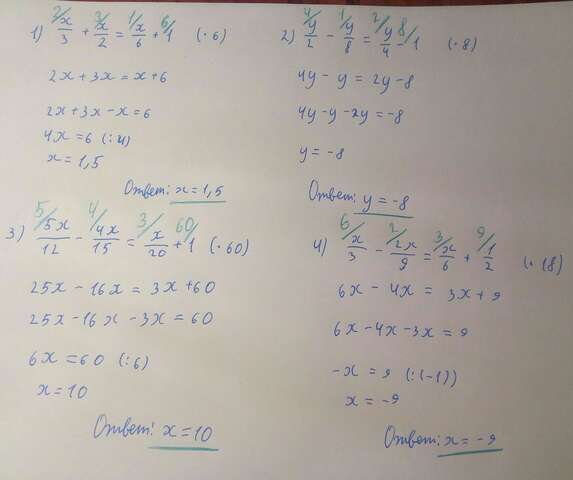 1) 2/ x/3 + 3/ x/2 = 1/ x/6 + 6/ 1 (·6)
2x + 3x = x + 6
2x + 3x - x = 6
4x = 6 (:4)
x = 1,5
Ответ: x = 1,5
2) 4/ y/2 - 1/ y/8 = 2/ y/4 - 8/ 1 (·8)
4y - y = 2y - 8
4y - y - 2y = -8
y = -8
Ответ: y = -8
3) 5/ 5x/12 - 4/ 4x/15 = 3/ x/20 + 60/ 1 (·60)
25x - 16x = 3x + 60
25x - 16x - 3x = 60
6x = 60 (:6)
x = 10
Ответ: x = 10
4) 6/ x/3 - 2/ 2x/9 = 3/ x/6 + 9/ 1/2 (·18)
6x - 4x = 3x + 9
6x - 4x - 3x = 9
-x = 9 (:(-1))
x = -9
Ответ: x = -9